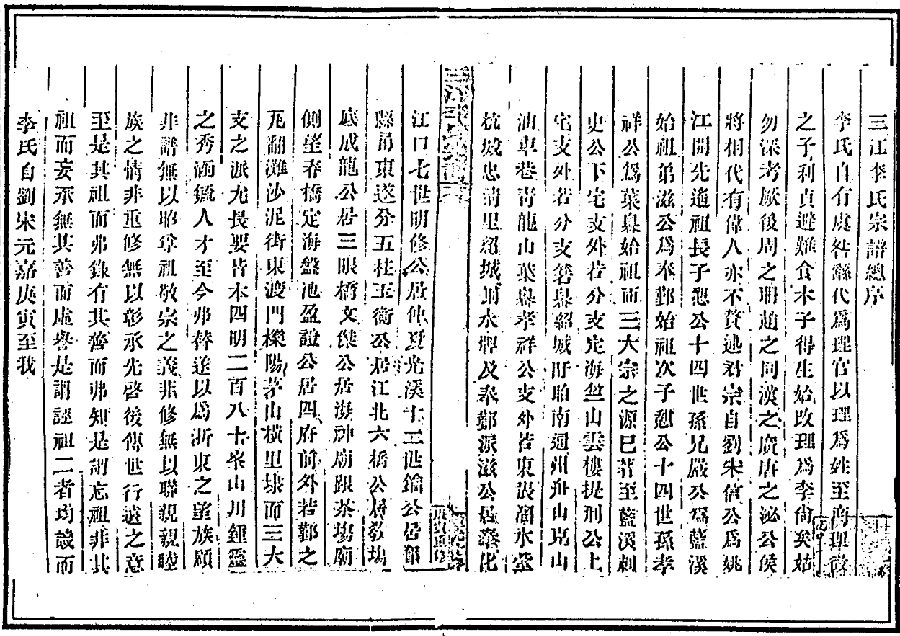 三江李氏宗譜總序
李氏自有虞咎繇代爲理官以理爲姓至商理徵
之子利貞避難食木子得生始改理爲李尚矣姑
勿深考厥後周之聃趙之同漢之廣唐之泌公侯
將相代有偉人亦不贅述對宗自劉宋信公爲姚
江開先遙祖長子憩公十四世孫兄嚴公爲藍溪
始祖弟滋公爲奉鄞始祖次子懇公十四世孫孝
祥公爲葉臯始祖而三大宗之源已肇至藍溪刺
史公下宅支外若分支定海岱山雲樓提刑公上
宅支外若分支箬臯紹城盱眙南通州舟山克山
油車巷靑龍山葉臯孝祥公支外若東溪湖水棠
杭城忠淸里紹城則水牌及奉鄞派滋公居奉化
江口七世明修公居仲夏光溪十二世鎬公居鄞
縣甬東遂分五柱玉衛公居江北六橋公居敎場
底成龍公居三眼橋文煒公居海神廟跟茶場廟
側望春橋定海盤池盈證公居四府前外若鄞之
瓦翻灘沙泥街東渡門櫟陽茅山橫里埭而三大
支之派尤長要皆本四明二百八十峯山川鍾靈
之秀涵毓人才至今弗替遂以爲浙東之望族顧
非譜無以昭尊祖敬宗之義非修無以聯親親睦
族之情非重修無以彰承先啓後傳世行遠之意
至是其祖而弗錄有其善而弗知是謂忘祖非其
祖而妄承無其善而虛譽是謂誣祖二者均譏而
李氏自劉宋元嘉庚寅至我